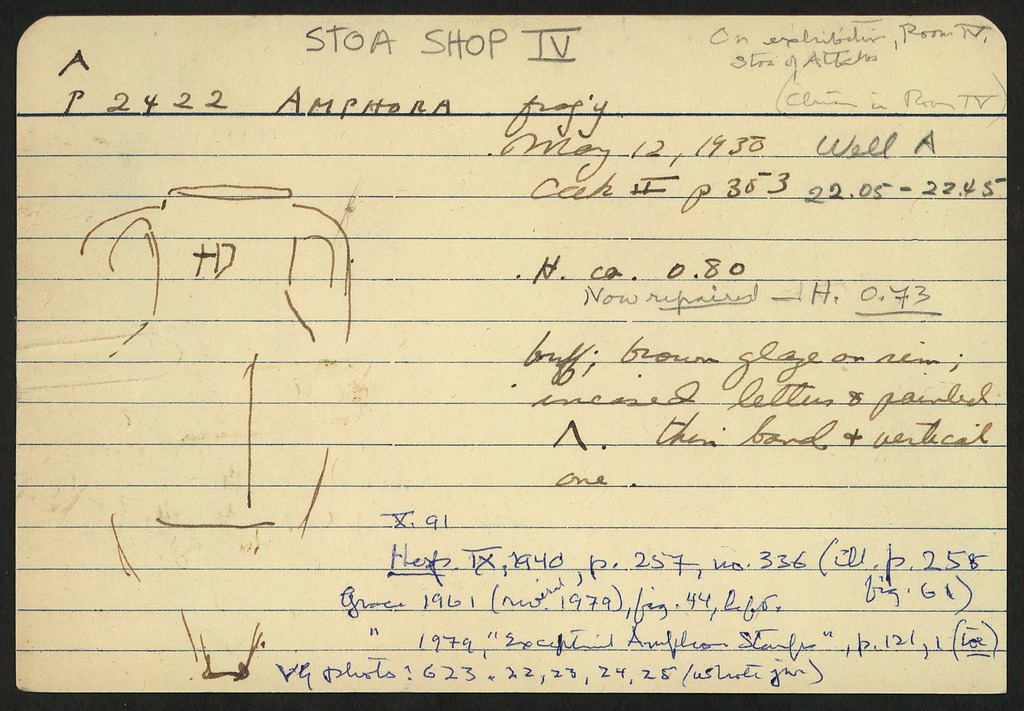 STOA SHOP IV
On exhibition, Room IV,
Stoa of Attalos
(Claim in Room IV)
A
P 2422 AMPHORA frag'y
May 12, 1933 Well A
p 353 22.05 - 22.45
HD
H. ca. 0.80
Now repaired — H. 0.73
buff; brown glaze on rim;
incised letters & painted
Λ. thin band & vertical
one.
X. 91
Hesp. IX, 1940, p. 257, no. 336 (ill. p. 258
fig. 61)
Grace 1961 (revised 1979), fig. 44, left.
" 1979, "Exceptional Amphora Stamps", p. 121, 1 (
VG photos: 623. 22, 23, 24, 25 (whole jar)